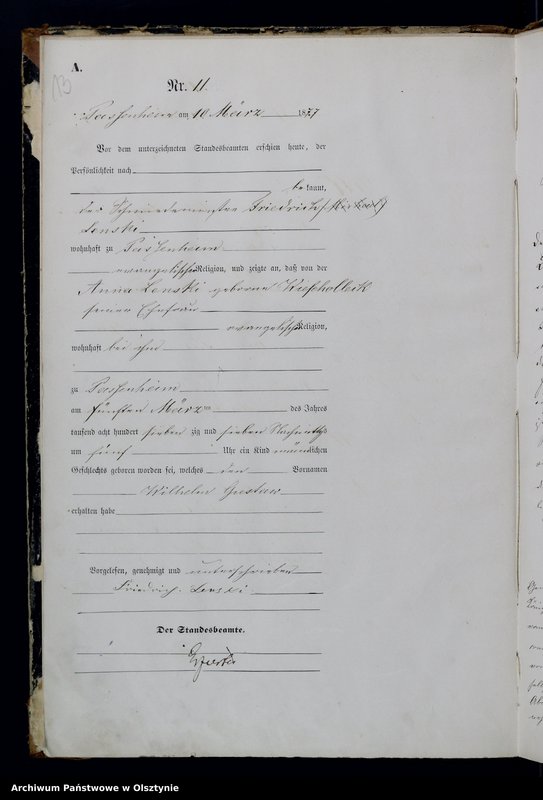 A.
13
Nr. 11
Passenheim am 10 März 1877
Vor dem unterzeichneten Standesbeamten erschien heute, der
Persönlichkeit nach
be kannt,
der Schmiedemeister Friedrich (Michael)
Lenski
wohnhaft zu Passenheim
evangelischer Religion, und zeigte an, daß von der
Anna Lenski geborene
seiner Ehefrau
evangelischer Religion,
wohnhaft bei ihm
zu Passenheim
am fünften März des Jahres
tausend acht hundert sieben zig und sieben Nachmittags
um fünf Uhr ein Kind männlichen
Geschlechts geboren worden sei, welches den Vornamen
Wilhelm Gustav
erhalten habe
Vorgelesen, genehmigt und unterschrieben
Friedrich Lenski
Der Standesbeamte.
Archiwum Państwowe w Olsztynie